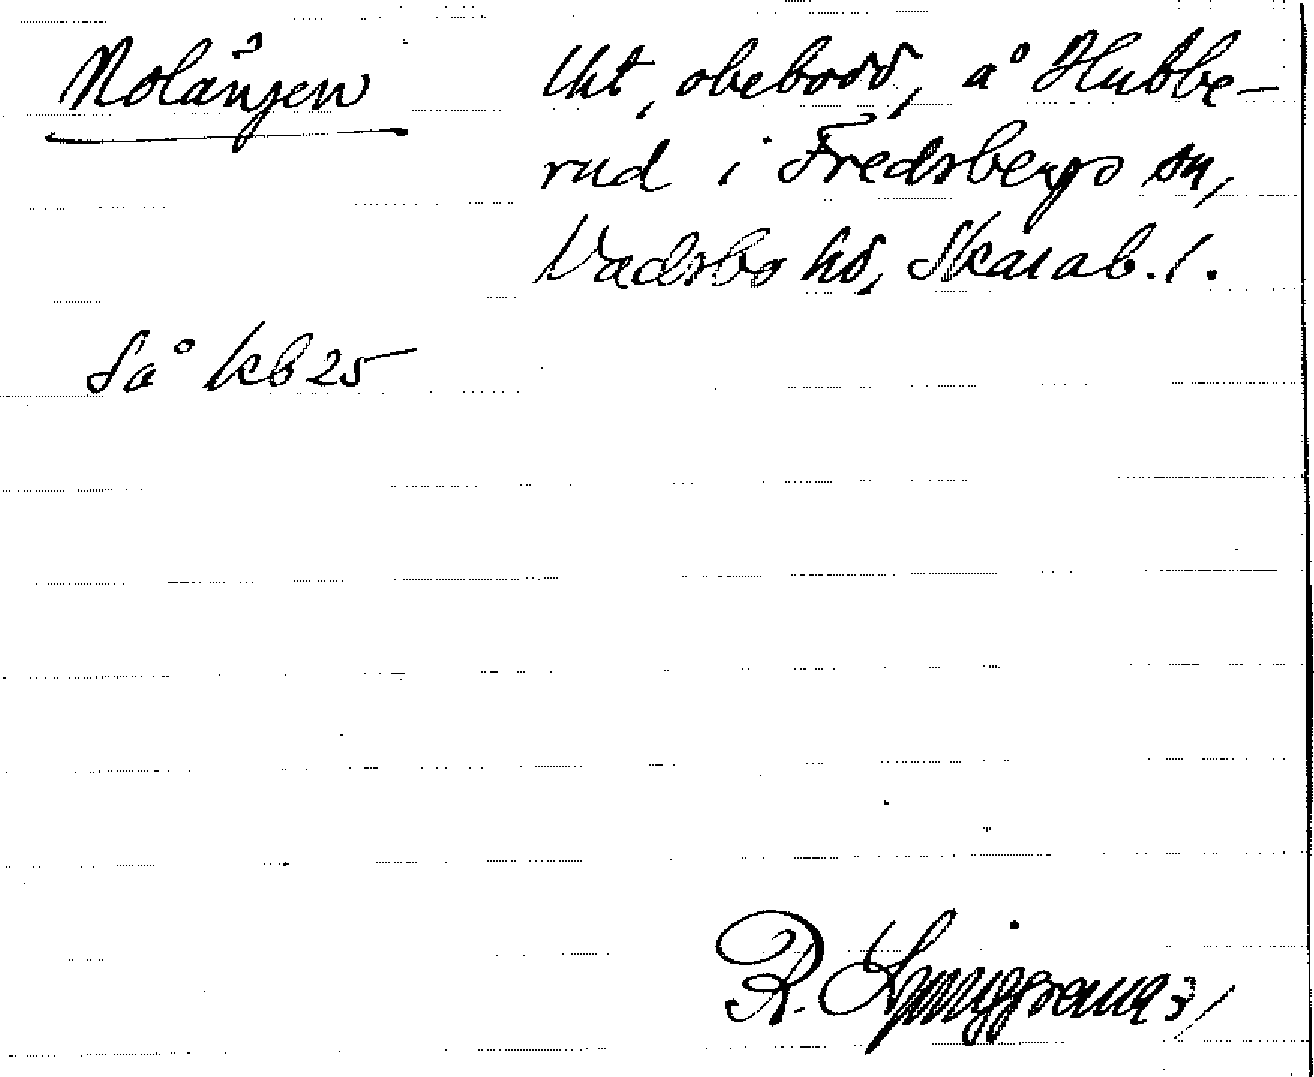 Nolängen
Ukt, obebodd, å Hubbe-
rud i Fredsbergs sn,
Vadsbo hd, Skarab. l.
Så kb 25
R.